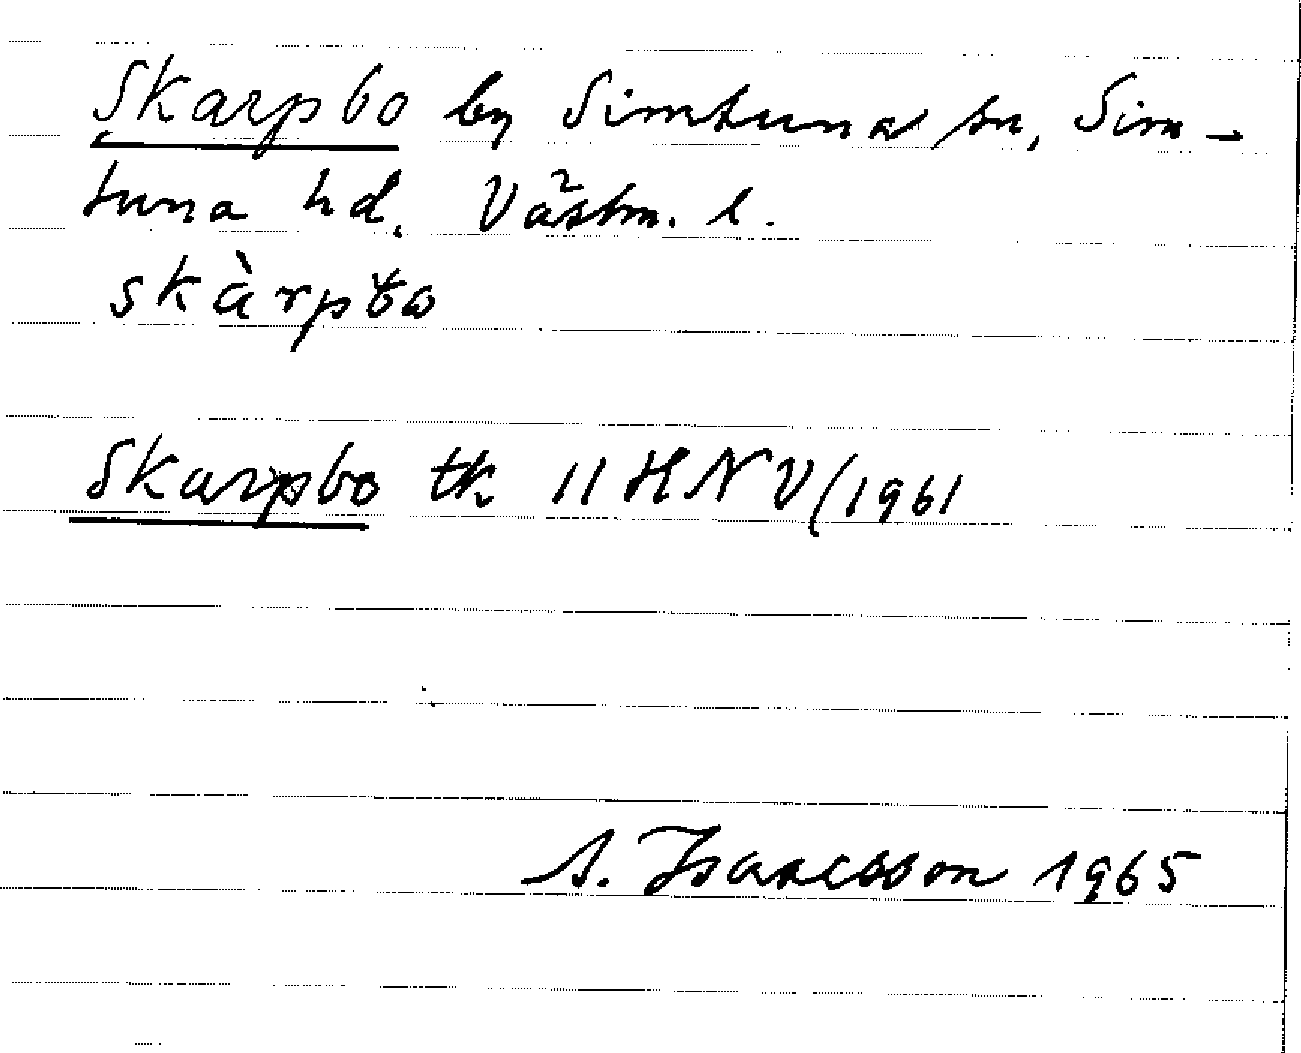 Skarpbo by Simtuna sn, Sim-
tuna hd. Västm. l.
skàrpbo
Skarpbo tk 11 H NV/1961
A. Isacsson 1965